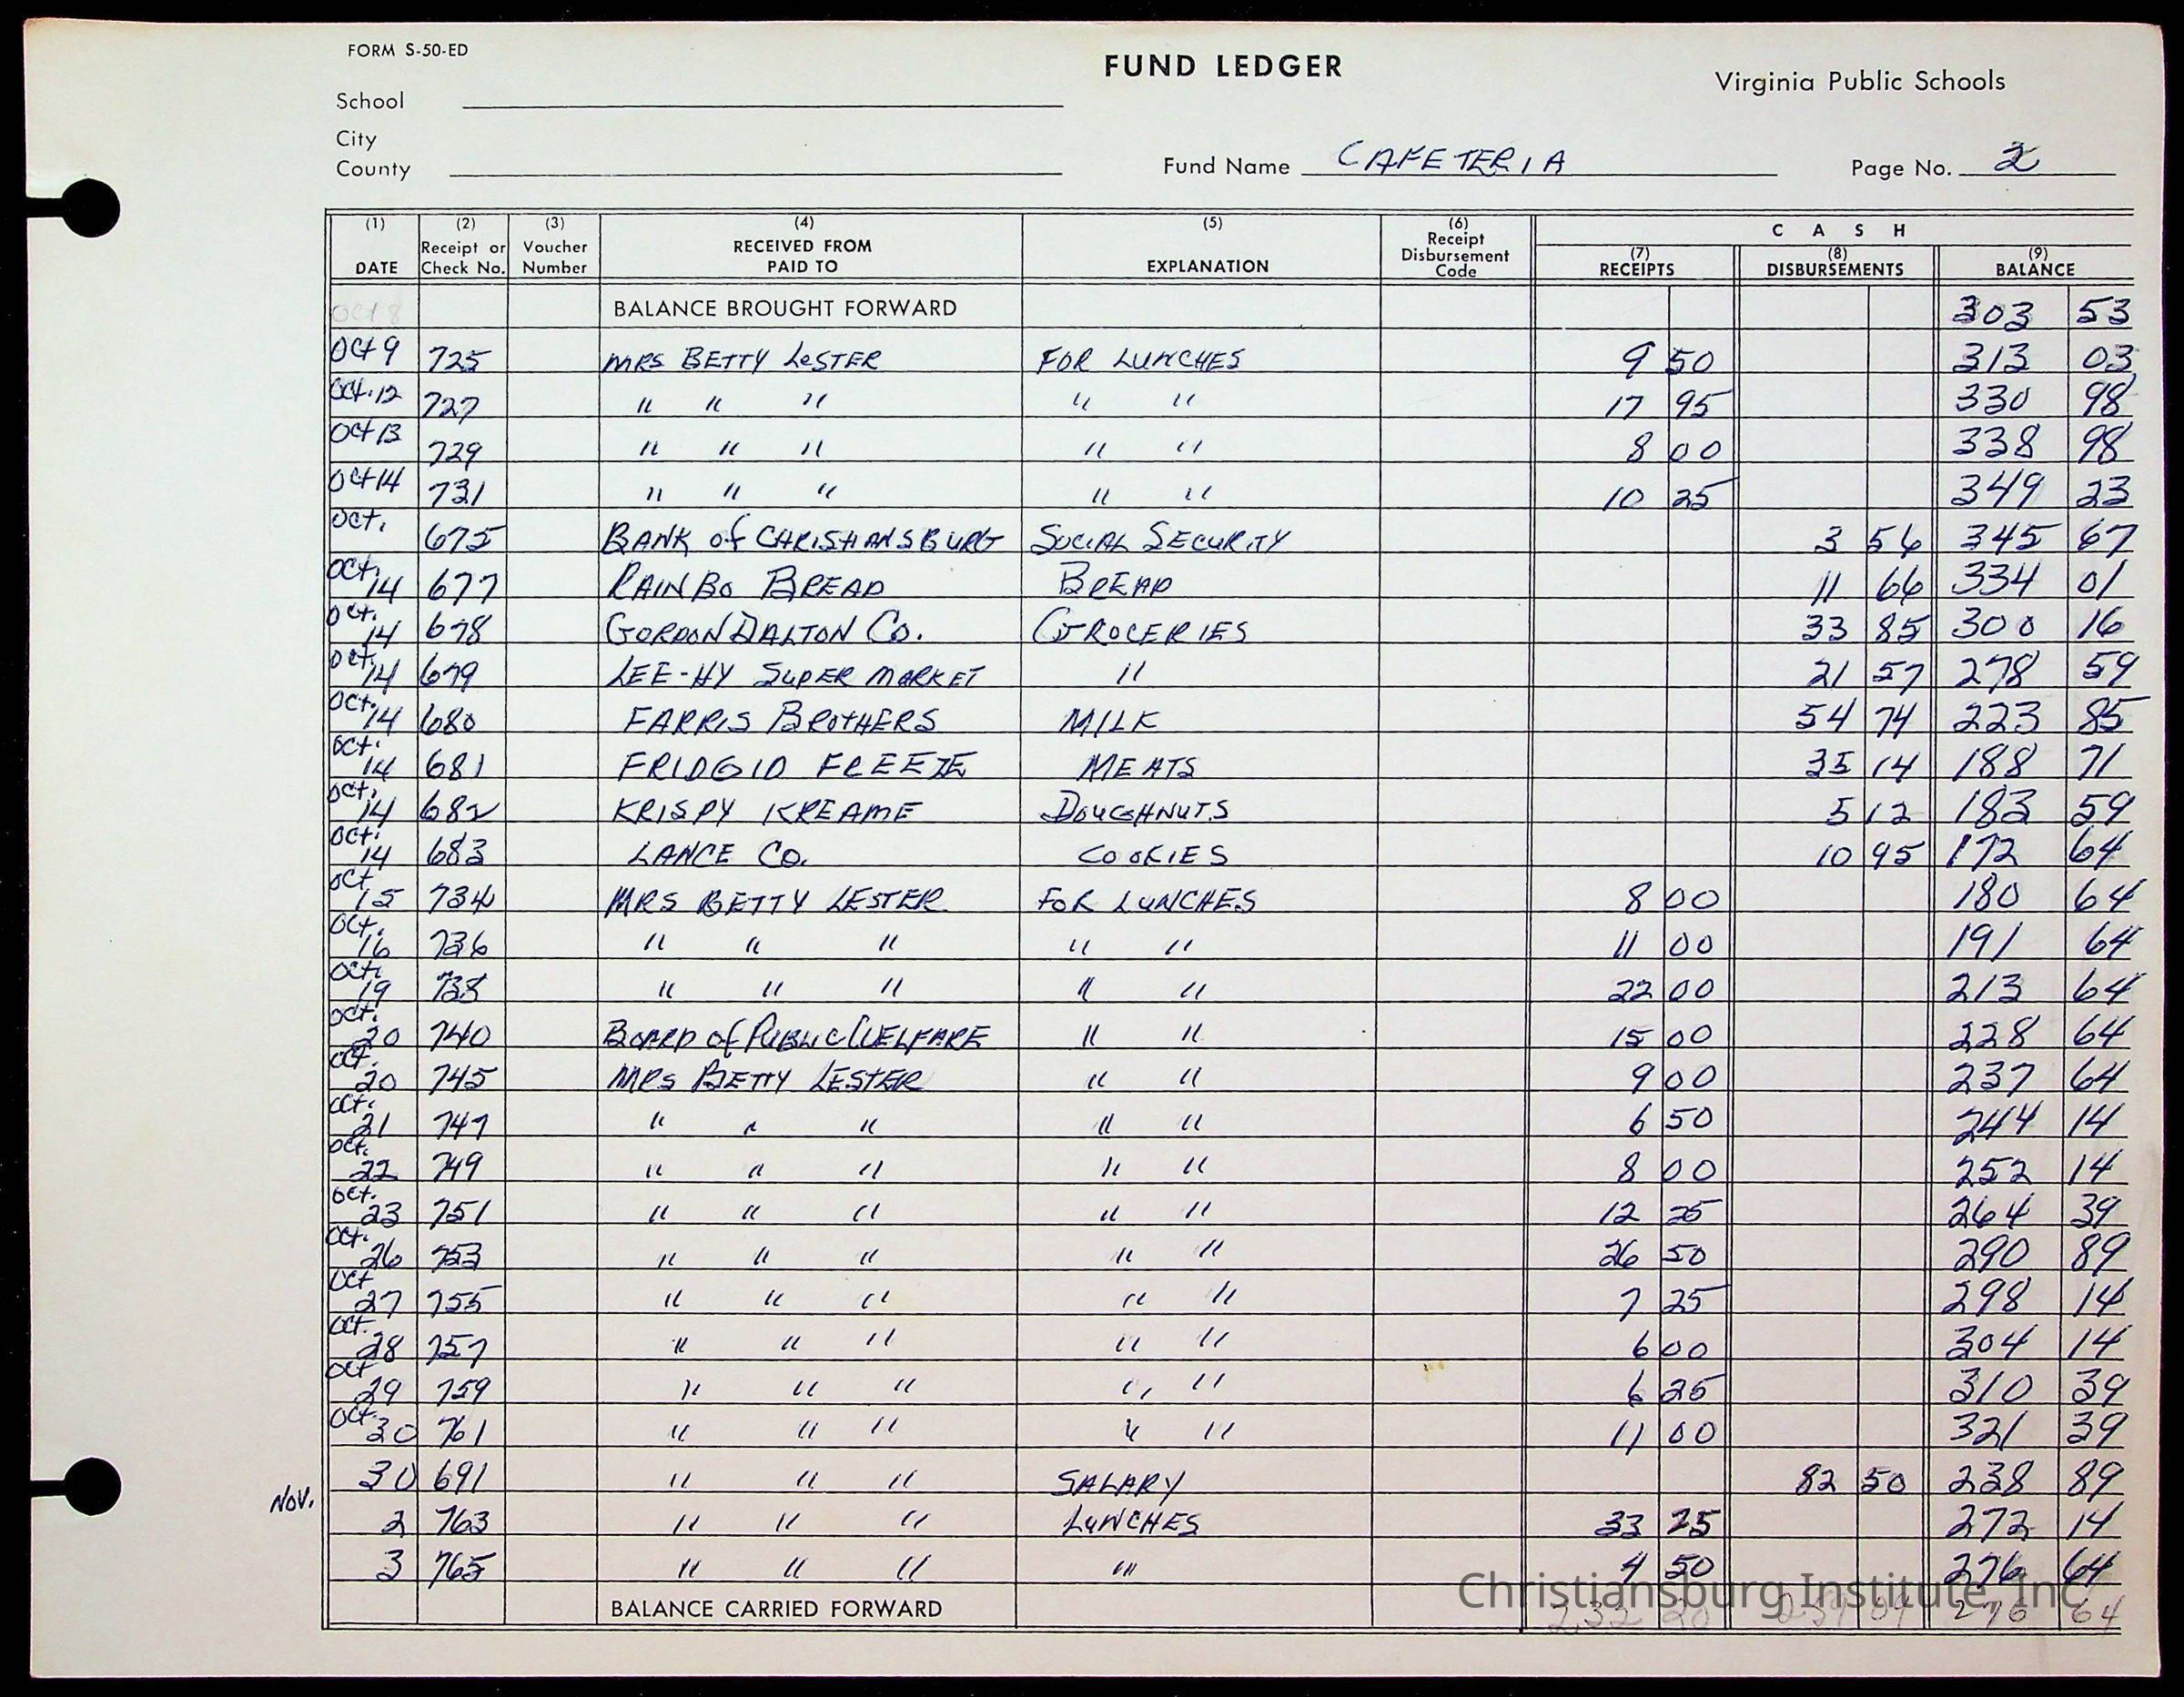 FORM S-50-ED
FUND LEDGER
Virginia Public Schools
School
City
County
Fund Name CAFETERIA
Page No. 2
(1) DATE (2) Receipt or Check No. (3) Voucher Number (4) RECEIVED FROM PAID TO (5) EXPLANATION (6) Receipt Disbursement Code CASH (7) RECEIPTS (8) DISBURSEMENTS (9) BALANCE
Oct 8 BALANCE BROUGHT FORWARD 303 53
Oct 9 725 MRS BETTY LeSTER FOR LUNCHES 9 50 313 03
Oct. 12 727 " " " " " 17 95 330 98
Oct 13 729 " " " " " 8 00 338 98
Oct 14 731 " " " " " 10 25 349 23
Oct. 675 BANK of CHRISTIANSBURG SOCIAL SECURITY 3 56 345 67
Oct. 14 677 RAINBO BREAD BREAD 11 66 334 01
Oct. 14 678 GORDON DALTON Co. GROCERIES 33 85 300 16
Oct. 14 679 LEE-HY SUPER MARKET " 21 57 278 59
Oct. 14 680 FARRIS BROTHERS MILK 54 74 223 85
Oct. 14 681 FRIDGID FREEZE MEATS 35 14 188 71
Oct. 14 682 KRISPY KREAME DOUGHNUTS 5 12 183 59
Oct. 14 683 LANCE CO. COOKIES 10 95 172 64
Oct 15 734 MRS BETTY LESTER FOR LUNCHES 8 00 180 64
Oct. 16 736 " " " " " 11 00 191 64
Oct. 19 738 " " " " " 22 00 213 64
Oct. 20 740 BOARD of PUBLIC WELFARE " " 15 00 228 64
Oct. 20 745 MRS BETTY LESTER " " 9 00 237 64
Oct. 21 747 " " " " " 6 50 244 14
Oct. 22 749 " " " " " 8 00 252 14
Oct. 23 751 " " " " " 12 25 264 39
Oct. 26 753 " " " " " 26 50 290 89
Oct 27 755 " " " " " 7 25 298 14
Oct. 28 757 " " " " " 6 00 304 14
Oct 29 759 " " " " " 6 25 310 39
Oct. 30 761 " " " " " 11 00 321 39
30 691 " " " SALARY 82 50 238 89
Nov. 2 763 " " " LUNCHES 33 25 272 14
3 765 " " " " 4 50 276 64
BALANCE CARRIED FORWARD 232 20 259 09 276 64
Christiansburg Institute, Inc